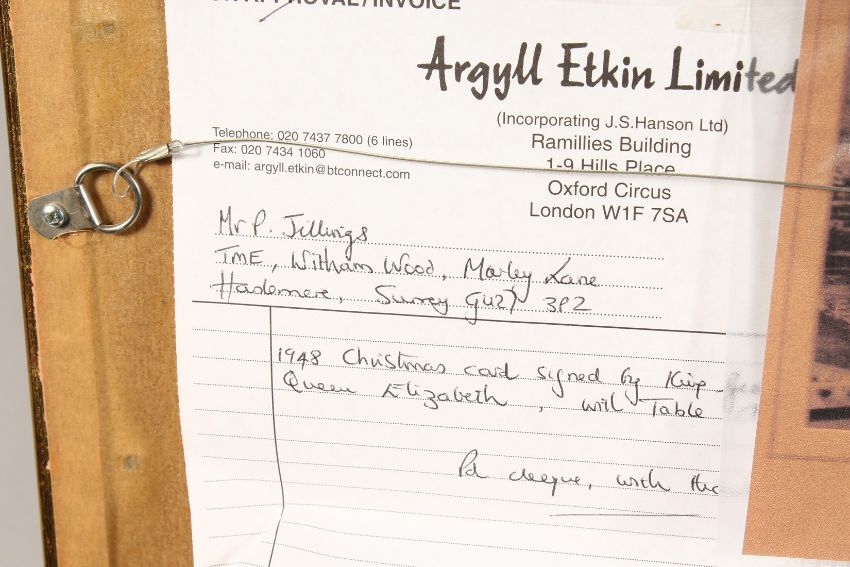 APPROVAL/INVOICE
Argyll Etkin Limited
(Incorporating J.S.Hanson Ltd)
Ramillies Building
1-9 Hills Place
Oxford Circus
London W1F 7SA
Telephone: 020 7437 7800 (6 lines)
Fax: 020 7434 1060
e-mail: argyll.etkin@btconnect.com
Mr P. Jillings
TME, Witham Wood, Marley Lane
Haslemere, Surrey GU27 3PZ
1948 Christmas card signed by King
Queen Elizabeth, with Table
Pd cheque, with the